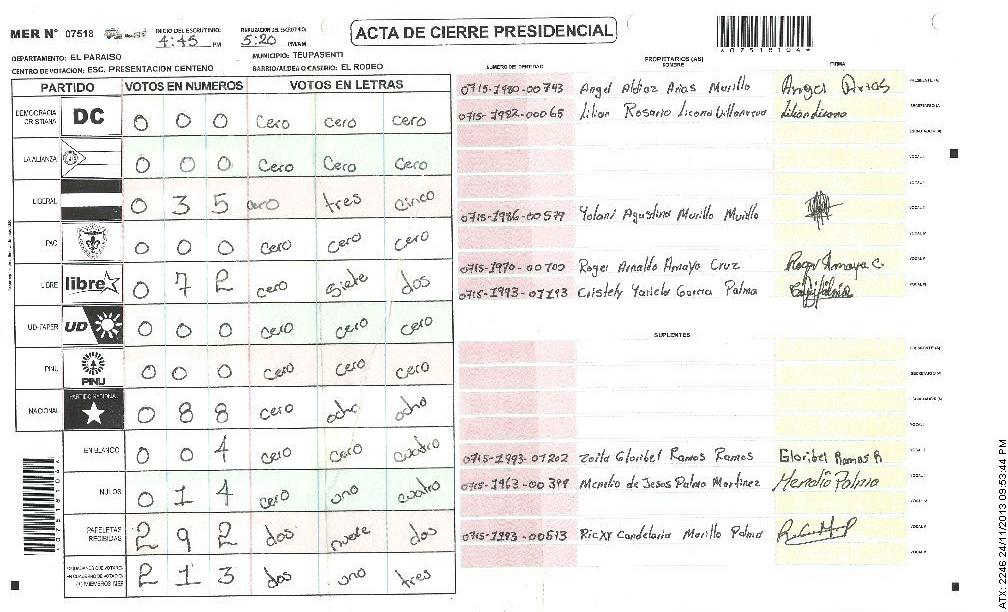 MER N° 07518
INICIO DEL ESCRUTINIO:
4:45 PM
5:20 PM/AM
ACTA DE CIERRE PRESIDENCIAL
075181044
DEPARTAMENTO: EL PARAISO
MUNICIPIO: TEUPASENTI
CENTRO DE VOTACION: ESC. PRESENTACION CENTENO
BARRIO/ALDEA O CASERIO: EL RODEO
PARTIDO VOTOS EN NUMEROS VOTOS EN LETRAS
DEMOCRACIA CRISTIANA DC 0 0 0 cero cero cero
LA ALIANZA 0 0 0 cero cero cero
LIBERAL 0 3 5 cero tres cinco
PAC 0 0 0 cero cero cero
LIBRE libre 0 7 2 cero siete dos
UD-FAPER UD 0 0 0 cero cero cero
PINU PINU 0 0 0 cero cero cero
NACIONAL PARTIDO NACIONAL 0 8 8 cero ocho ocho
EN BLANCO 0 0 4 cero cero cuatro
NULOS 0 1 4 cero uno cuatro
PAPELETAS RECIBIDAS 2 9 2 dos nueve dos
CIUDADANOS QUE VOTARON EN CUADERNO DE VOTACION (+) MIEMBROS MER 2 1 3 dos uno tres
NUMERO DE IDENTIDAD
PROPIETARIOS (AS)
NOMBRE
FIRMA
0715-1980-00743 Angel Aldiaz Arias Murillo Angel Arias
PRESIDENTE (A)
0715-1982-00065 Lilian Rosario Licona Villanueva Lilian Licona
SECRETARIO (A)
ESCRUTADOR (A)
VOCAL I
0715-1986-00579 Yolani Agustina Murillo Murillo
0715-1970-00700 Roger Arnaldo Amaya Cruz Roger Amaya C.
0715-1993-01193 Cristely Yariela Garcia Palma
SUPLENTES
PRESIDENTE (A)
SECRETARIO (A)
ESCRUTADOR (A)
VOCAL I
0715-1993-01202 Zoila Gloribel Ramos Ramos Gloribel Ramos R
0715-1963-00398 Merelio de Jesus Palma Martinez
0715-1993-00513 Ricxy Candelaria Murillo Palma
ATX: 2246 24/11/2013 09:53:44 PM